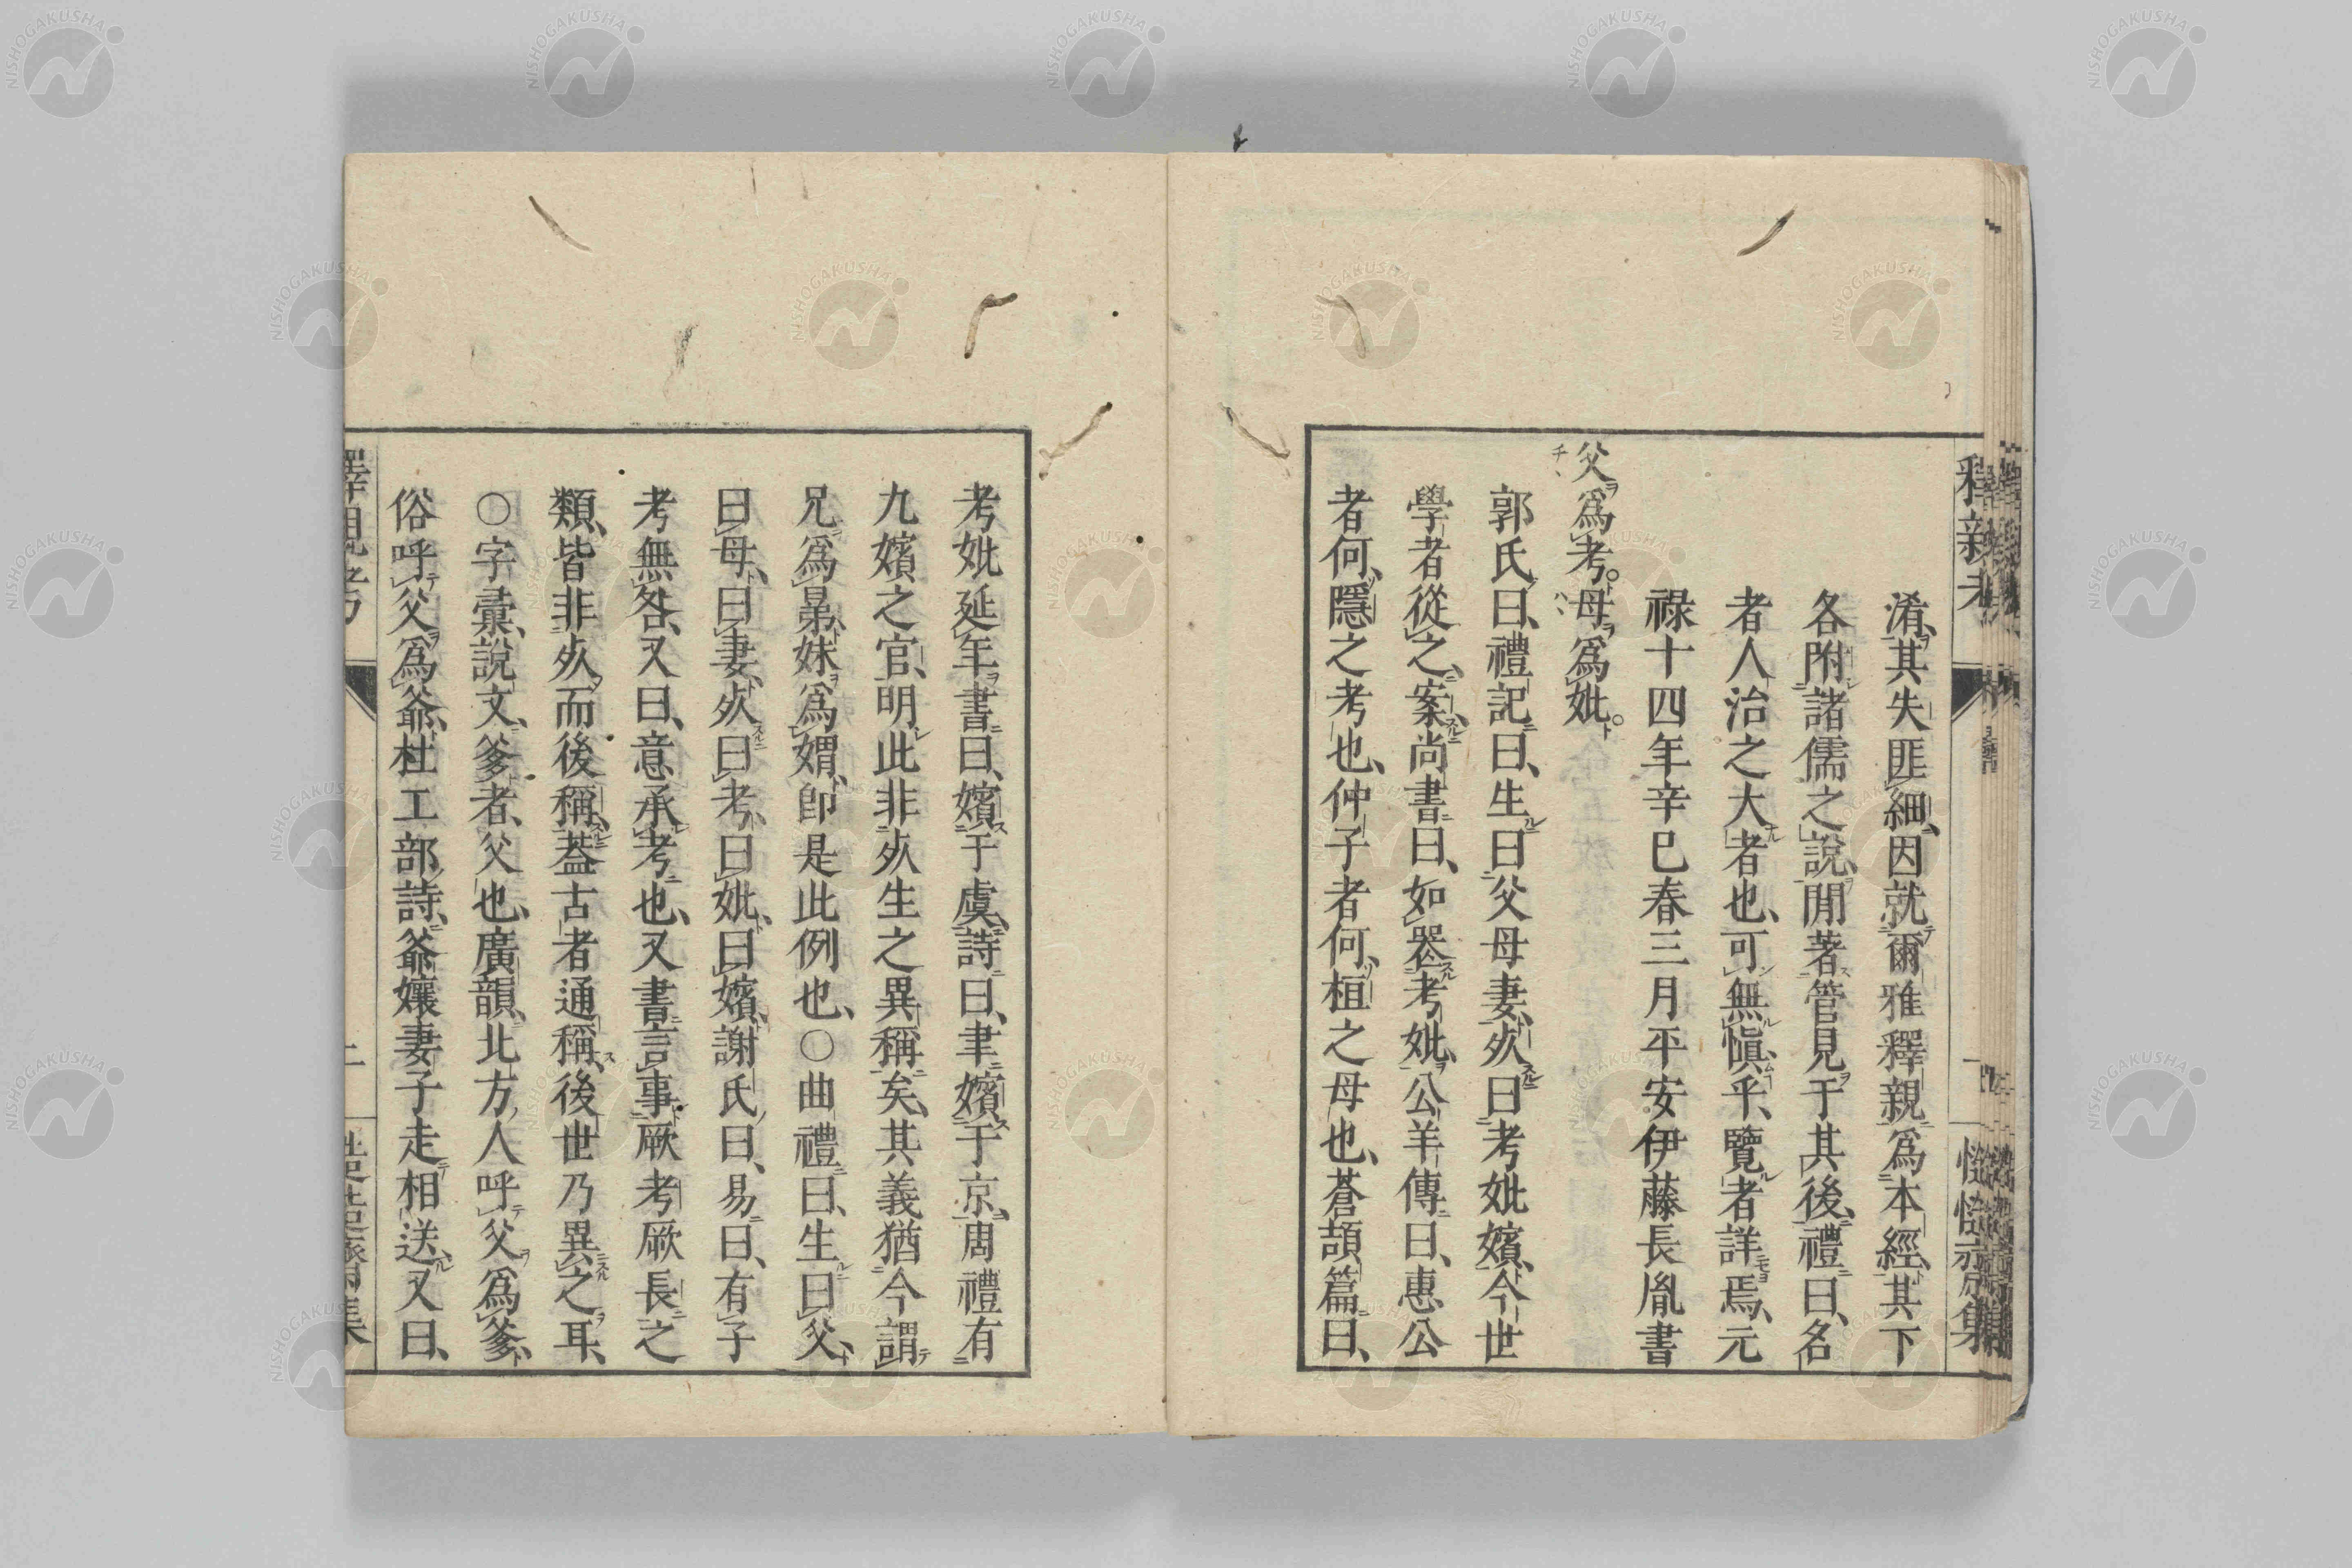 淆、其失匪細、因就爾雅釋親爲本經、其下
各附諸儒之說、閒著管見于其後、禮曰、名
者人治之大者也、可無愼乎、覽者詳焉、元
祿十四年辛巳春三月平安伊藤長胤書
父爲考。母爲妣。
郭氏曰、禮記曰、生曰父母妻、㱾曰考妣嬪、今世
學者從之、案尚書曰、如喪考妣、公羊傳曰、惠公
者何、隱之考也、仲子者何、桓之母也、蒼頡篇曰、
考妣延年、書曰、嬪于虞、詩曰、聿嬪于京、周禮有
九嬪之官、明此非死生之異稱矣、其義猶今謂
兄爲㬪妹爲媦、卽是此例也、〇曲禮曰、生曰父、
曰母、曰妻、死曰考、曰妣、曰嬪、謝氏曰、易曰、有子
考無咎、又曰、意承考也、又書言、事厥考厥長之
類、皆非死而後稱、葢古者通稱、後世乃異之耳、
〇字彙、說文、爹者、父也、廣韻、北方人呼父爲爹、
俗呼父爲爺、杜工部詩、爺孃妻子走相送、又曰、
釋親考
二
慥慥齋藏集